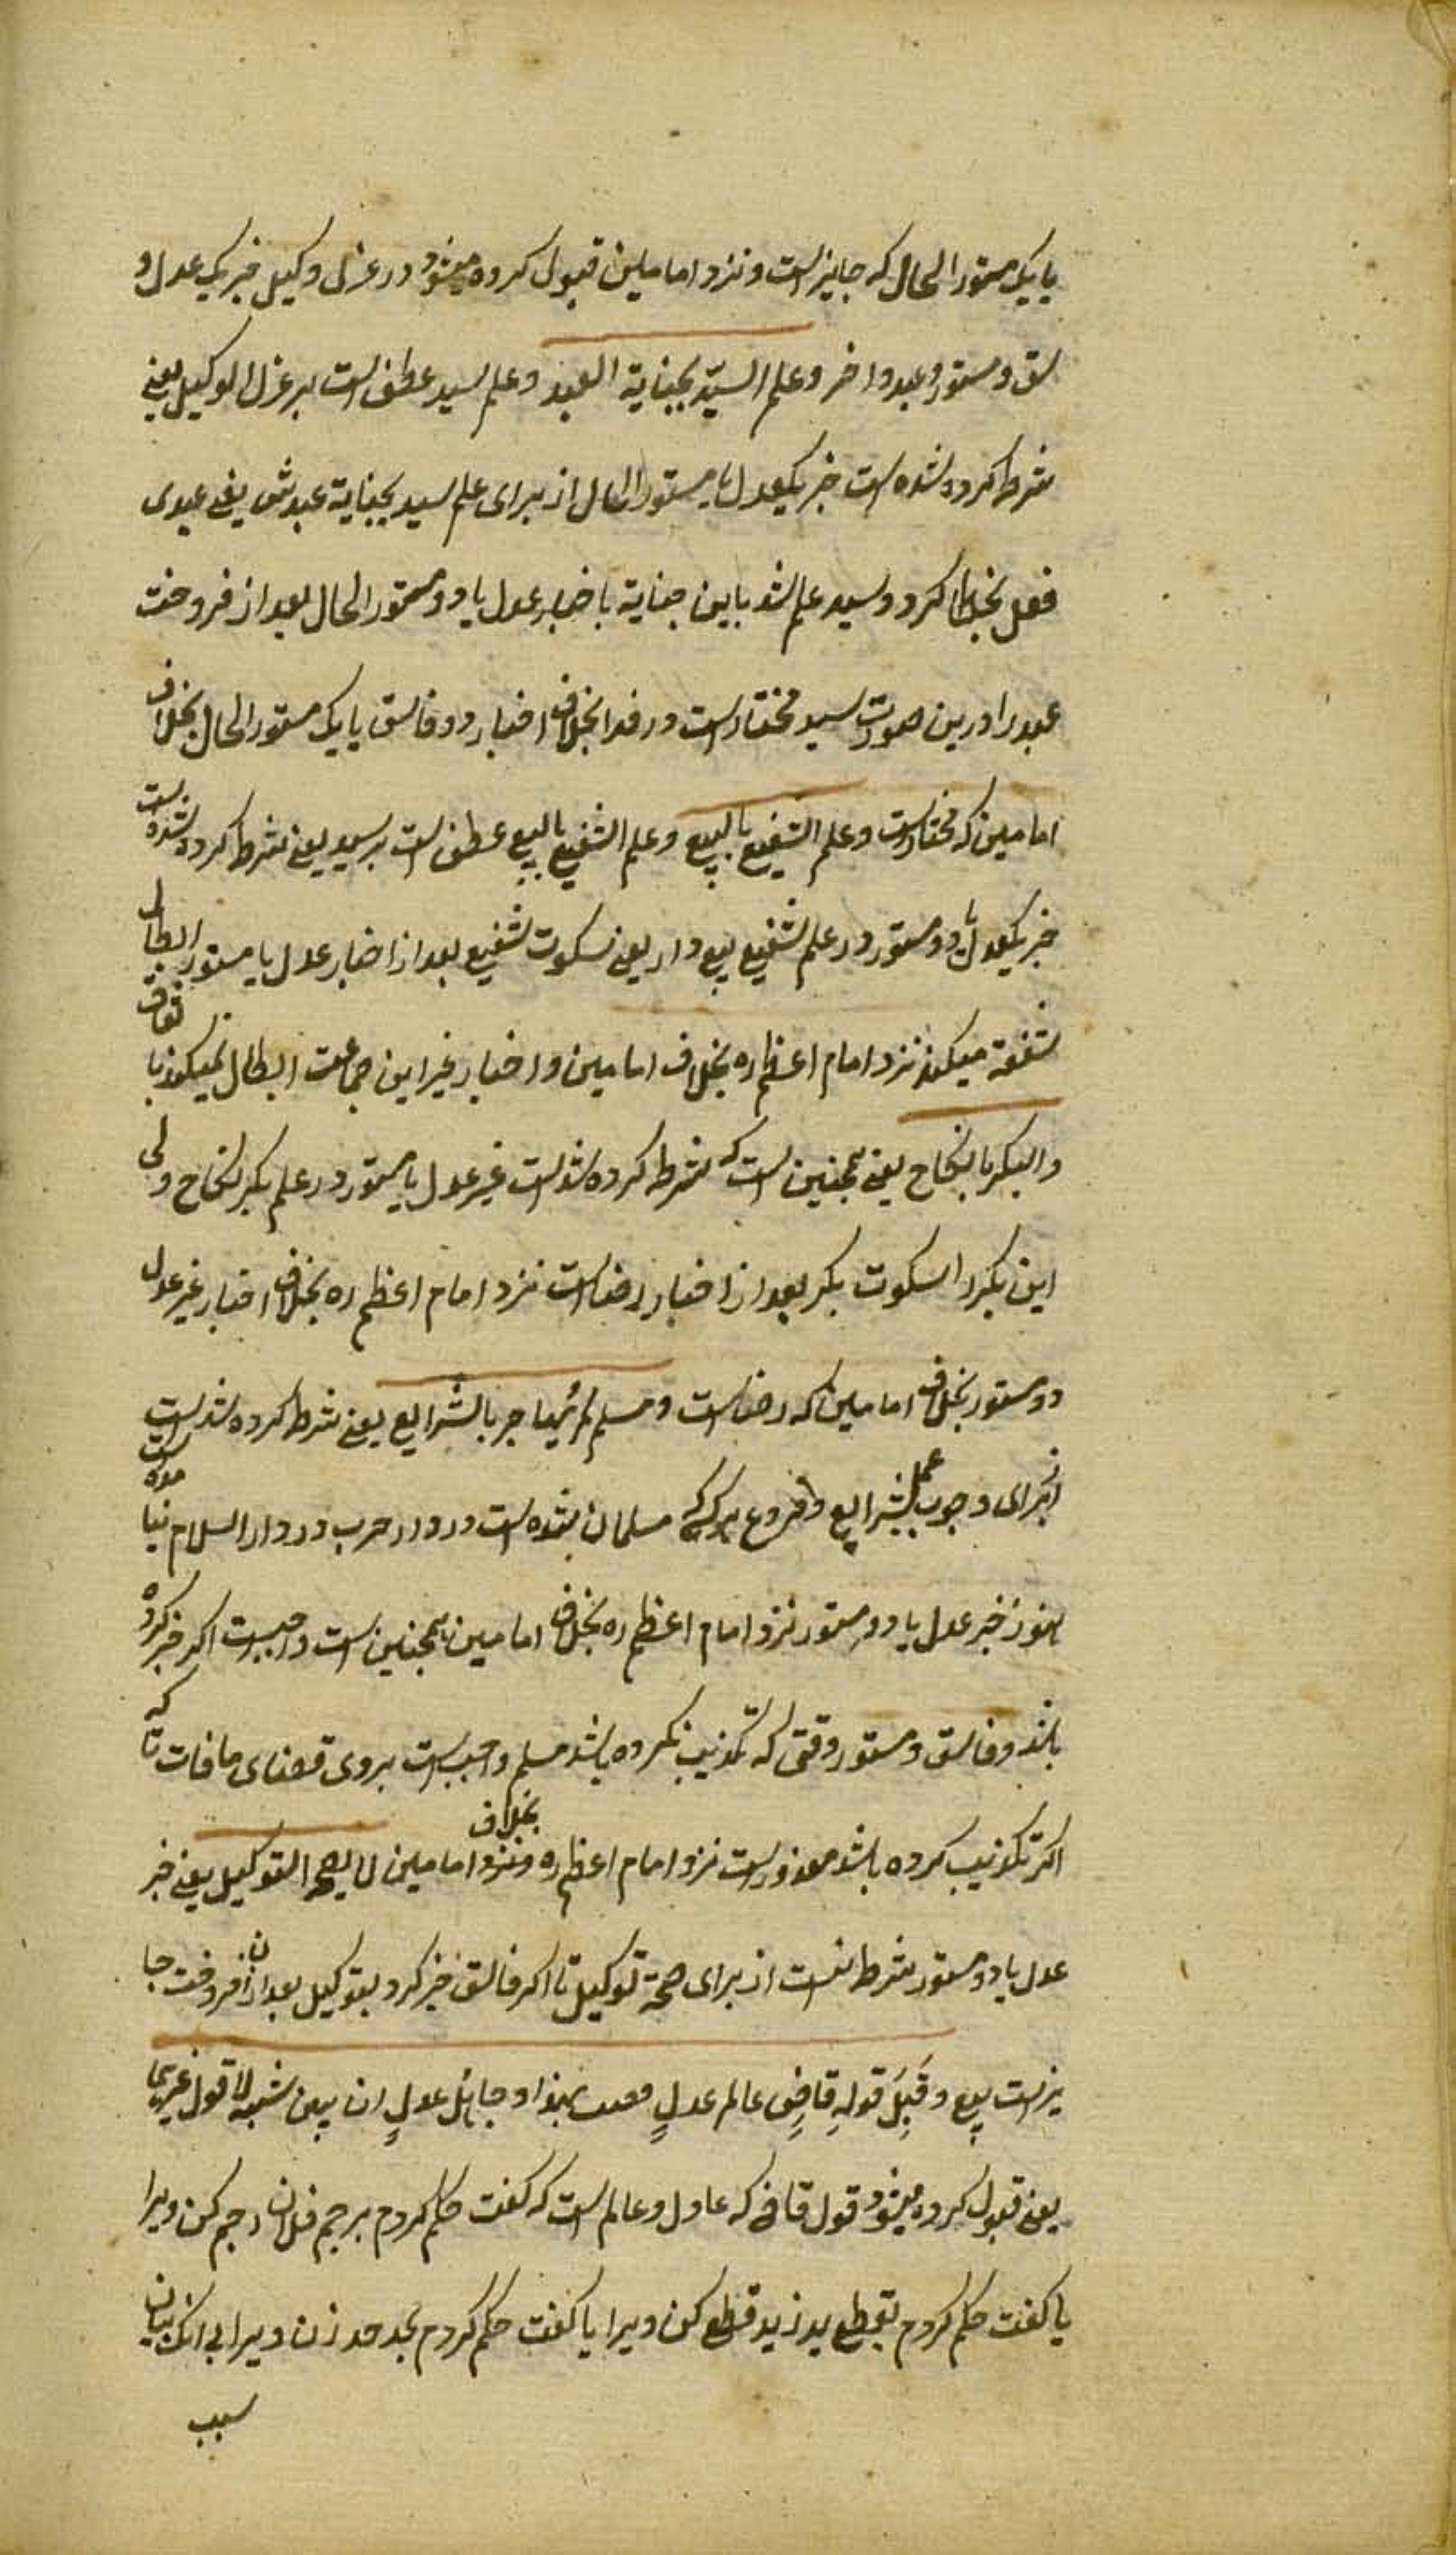 یا یک مستور الحال که جایز است و نزد امامین قبول کرده میشود در عزل وکیل خبر یک عدل و
سق و مستور و عبد واخر وعلم السیّد بجنایة العبد و علم سید عطف است بر عزل الوکیل یعنی
شرط کرده شده است خبر یکعدل یا مستور الحال از برای علم سید بجنایة عبدش یعنی عبدی
فعل بخطا کرد و سید علم شد باین جنایة باخبار عدل یا دو مستور الحال بعد از فروخت
عبد را درین صورت سید مختار است در فدا بخلاف اخبار دو فاسق یا یک مستور الحال بخلاف
امامین که مختار است وعلم الشفیع بالبیع و علم الشفیع بالبیع عطف است بر سید یعنی شرط کرده شده است
خبر یکعدل یا دو مستور در علم شفیع ببیع دار یعنی سکوت شفیع بعد از اخبار عدل یا مستور ابطال
شفعه میکند نزد امام اعظم ره بخلاف امامین و اخبار غیر این جماعت ابطال نمیکند باتفاق
والبکر بالنکاح یعنی همچنین است که شرط کرده شد است غیر عدل یا مستور در علم بکر بنکاح ولی
این بکر را سکوت بکر بعد از اخبار رضا است نزد امام اعظم ره بخلاف اخبار غیر عدل
دو مستور بخلاف امامین که رضا است ومسلم لم یهاجر بالشرایع یعنی شرط کرده شد است
از برای وجوب عمل بشرایع و فروع هر که مسلمان شده است در دار حرب و در دار السلام نیامده است
هنوز خبر عدل یا دو مستور نزد امام اعظم ره بخلاف امامین همچنین است واجبست اکر خبر کرده
باشد و فاسق و مستور وقتی که تکذیب نکرده باشد مسلم واجب است بروی قضای مافات تا که
اکر تکذیب کرده باشد معذور است نزد امام اعظم ره ونزد بخلاف امامین لا یصح التوکیل یعنی خبر
عدل یا دو مستور شرط نیست از برای صحة توکیل تا اکر فاسق خبر کرد بتوکیل بعد ازان فروخت جا
یز است بیع وقُبِلَ قولِ قاضٍ عالم عدلٍ بهذا وجاهل عدلٍ ان بین سببه لا قول غیرهما
یعنی قبول کرده میشود قول قاضی که عادل و عالم است که کفت حکم کردم برجم فلان رجم کن ویرا
یا کفت حکم کردم بقطع ید زید قطع کن ویرا یا کفت حکم کردم بحد حد زن ویرا بی انک بیان
سبب